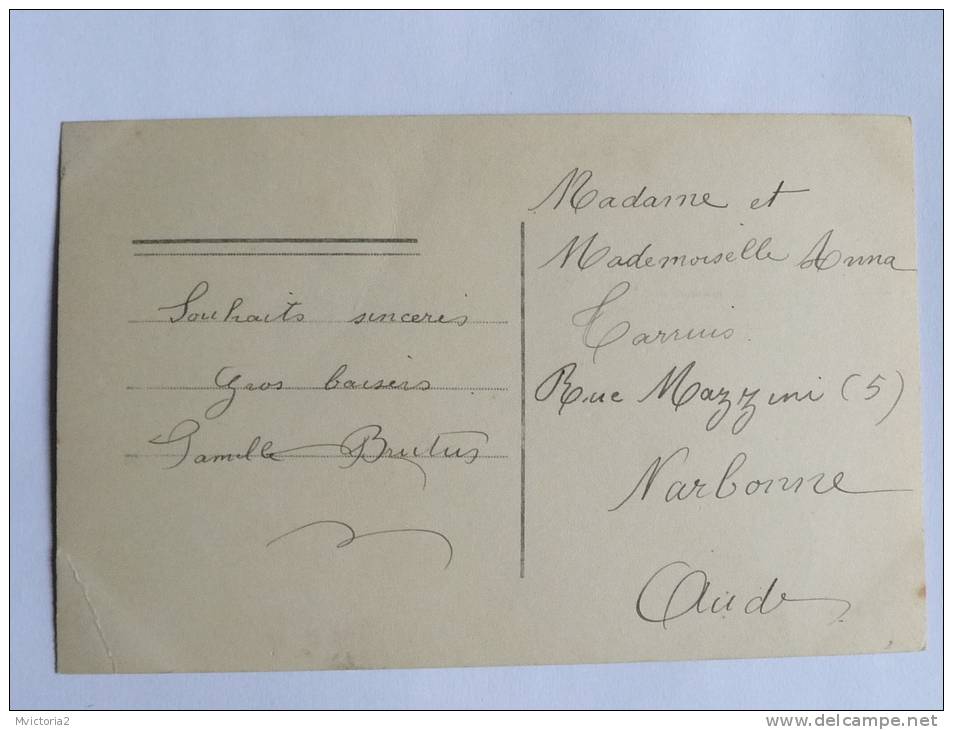 Souhaits sinceres
Gros baisers
Famille Brutus
Madame et
Mademoiselle Anna
Rue Mazzini (5)
Narbonne
Aude
Mvictoria2
www.delcampe.net